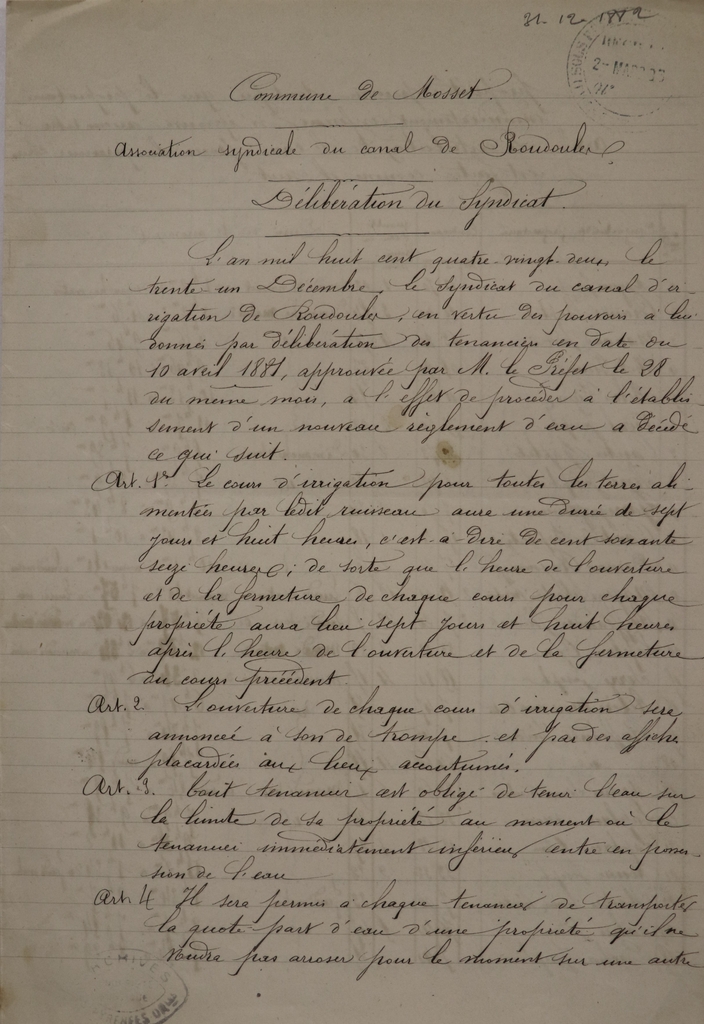 31. 12. 1882
Commune de Mosset.
Association syndicale du canal de Roudoules
Délibération du Syndicat.
L'an mil huit cent quatre-vingt-deux le
trente un Décembre, le Syndicat du canal d'ir-
rigation de Roudoules, en vertu des pouvoirs à lui
donnés par délibération des tenanciers en date du
10 avril 1881, approuvée par M. le Préfet le 28
du même mois, a l'effet de procéder à l'établis-
sement d'un nouveau règlement d'eau a décidé
ce qui suit.
Art. 1er Le cours d'irrigation pour toutes les terres ali-
mentées par ledit ruisseau aura une durée de sept
jours et huit heures, c'est-à-dire de cent soixante
seize heures; de sorte que l'heure de l'ouverture
et de la fermeture de chaque cours pour chaque
propriété aura lieu sept jours et huit heures
après l'heure de l'ouverture et de la fermeture
du cours précédent.
Art. 2. L'ouverture de chaque cours d'irrigation sera
annoncée à son de trompe et par des affiches
placardées aux lieux accoutumés.
Art. 3. Tout tenancier est obligé de tenir l'eau sur
la limite de sa propriété au moment où le
tenancier immédiatement inférieur entre en posses-
sion de l'eau
Art. 4 Il sera permis à chaque tenancier de transporter
la quote-part d'eau d'une propriété qu'il ne
voudra pas arroser pour le moment sur une autre